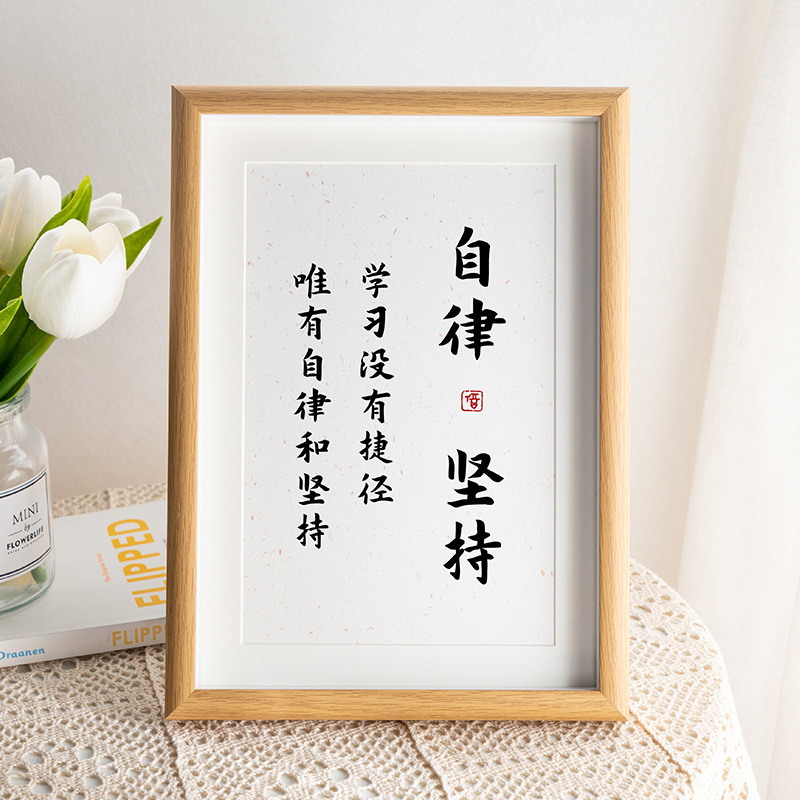 自律
坚持
学习没有捷径
唯有自律和坚持
MINI
by
FLOWERLIFE
FLIPPED
FLIPP
Draanen